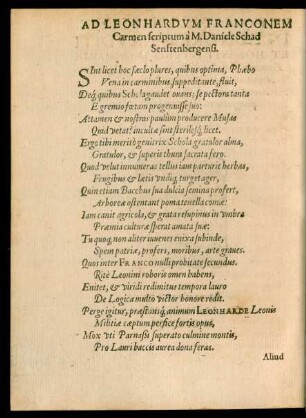 AD LEONHARDVM FRANCONEM
Carmen scriptum à M. Daniele Schad
Senftenbergensi.
SInt licet hoc sæclo plures, quibus optima, Phœbo
Vena in carminibus suppeditante, fluit,
Deq́; quibus Schola gaudet ouans; se pectora tanta
E gremio fœtam progenuisse suo:
Attamen & nostras paulùm producere Musas
Quid vetat? incultæ sint sterilesq́; licet.
Ergo tibi meritò genitrix Schola gratulor alma,
Gratulor, & superis thura sacrata fero.
Quod velut innumeras tellus iam parturit herbas,
Frugibus & lætis vndiq; turget ager,
Quin etiam Bacchus sua dulcia semina profert,
Arboreæ ostentant poma tenella comæ:
Iam canit agricola, & gratæ resupinus in vmbra
Præmia culturæ sperat amata suæ:
Tu quoq; non aliter iuuenes enixa subinde,
Spem patriæ, profers, moribus, arte graues.
Quos inter FRANCO nulli probitate secundus.
Ritè Leonini roboris omen habens,
Enitet, & viridi redimitus tempora lauro
De Logica multo victor honore redit.
Perge igitur, præstansq́; animum LEONHARDE Leonis
Militiæ cæptum perfice fortis opus,
Mox vti Parnassi superato culmine montis,
Pro Lauri baccis aurea dona feras.
Aliud